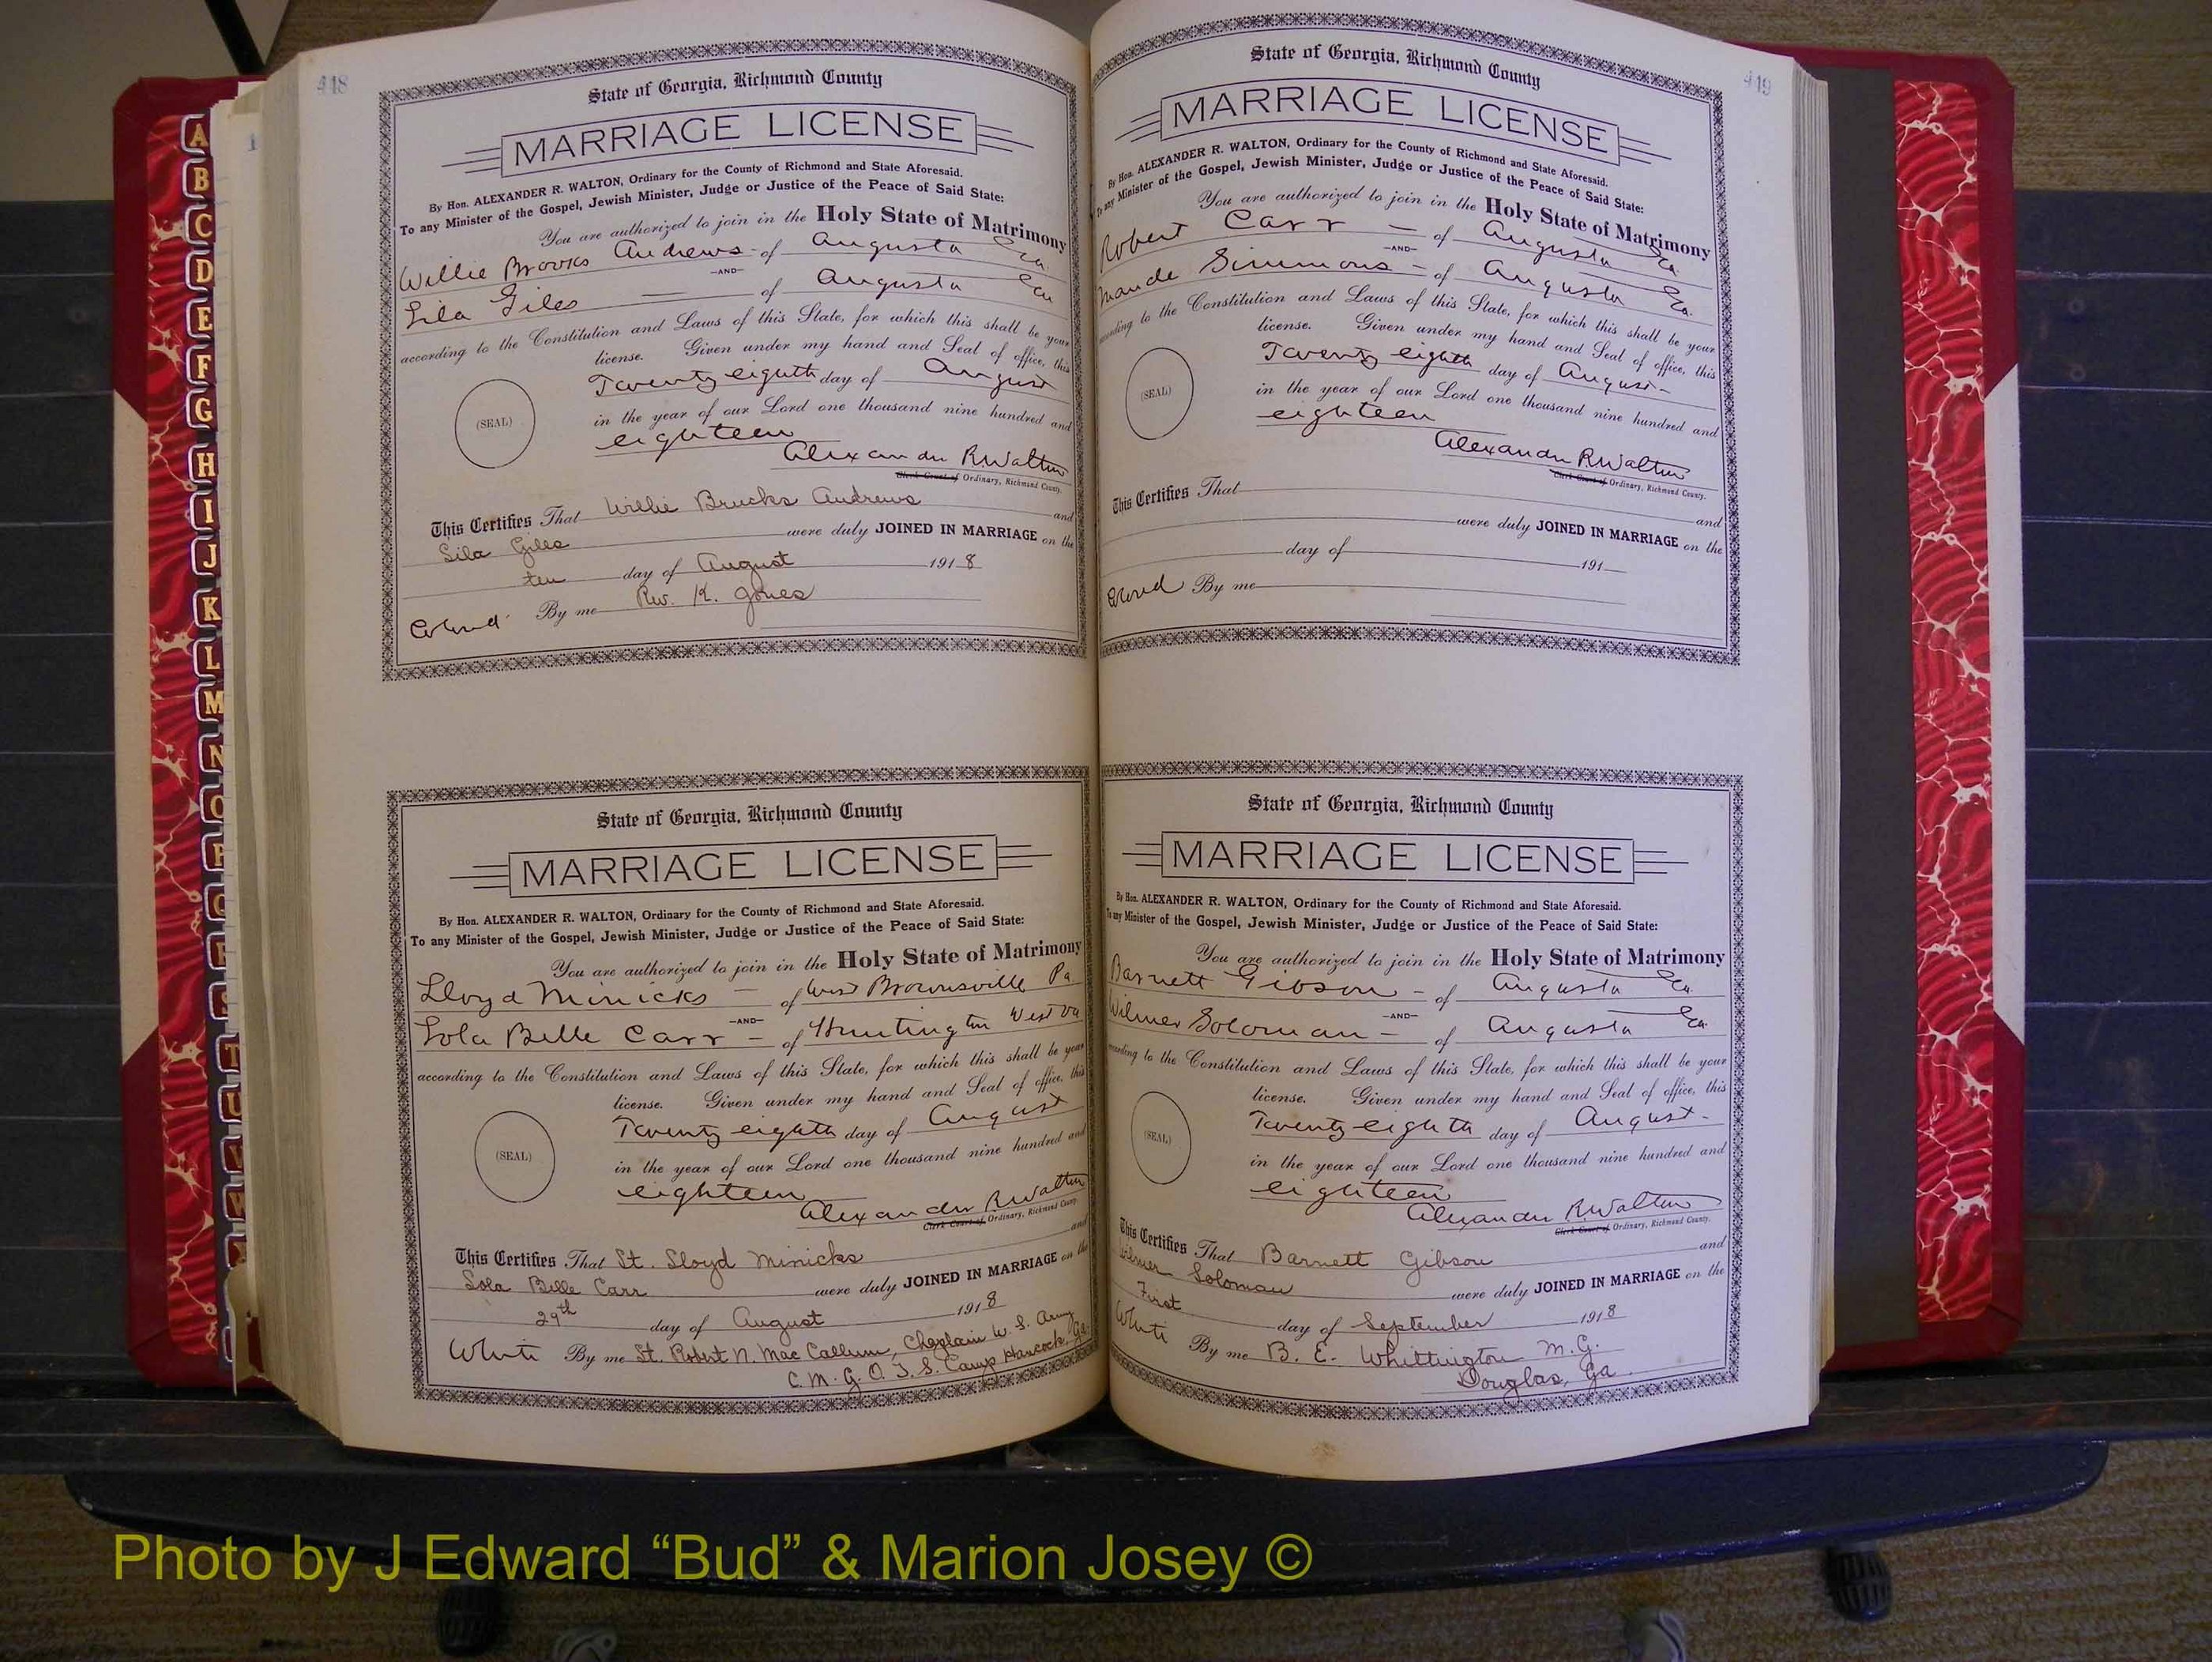 418
State of Georgia, Richmond County
MARRIAGE LICENSE
By Hon. ALEXANDER R. WALTON, Ordinary for the County of Richmond and State Aforesaid.
To any Minister of the Gospel, Jewish Minister, Judge or Justice of the Peace of Said State:
You are authorized to join in the Holy State of Matrimony
Willie Brooks Andrews of Augusta Ga
—AND—
Lila Giles of Augusta Ga
according to the Constitution and Laws of this State, for which this shall be your
license. Given under my hand and Seal of office, this
Twenty eighth day of August
(SEAL)
in the year of our Lord one thousand nine hundred and
eighteen
Alexander R. Walton
Clerk Court of Ordinary, Richmond County.
This Certifies That Willie Brucks Andrews and
Lila Giles were duly JOINED IN MARRIAGE on the
ten day of August 1918
Colored By me Rev. K. Jones
State of Georgia, Richmond County
MARRIAGE LICENSE
By Hon. ALEXANDER R. WALTON, Ordinary for the County of Richmond and State Aforesaid.
To any Minister of the Gospel, Jewish Minister, Judge or Justice of the Peace of Said State:
You are authorized to join in the Holy State of Matrimony
Lloyd Minicks of West Brownsville Pa
—AND—
Lola Belle Carr of Huntington West Va
according to the Constitution and Laws of this State, for which this shall be your
license. Given under my hand and Seal of office, this
Twenty eighth day of August
(SEAL)
in the year of our Lord one thousand nine hundred and
eighteen
Alexander R. Walton
Clerk Court of Ordinary, Richmond County.
This Certifies That Lt. Lloyd Minicks and
Lola Belle Carr were duly JOINED IN MARRIAGE on the
29th day of August 1918
White By me Lt. Robert N. Mac Callum, Chaplain U. S. Army
C. M. G. O. T. S. Camp Hancock, Ga.
419
State of Georgia, Richmond County
MARRIAGE LICENSE
By Hon. ALEXANDER R. WALTON, Ordinary for the County of Richmond and State Aforesaid.
To any Minister of the Gospel, Jewish Minister, Judge or Justice of the Peace of Said State:
You are authorized to join in the Holy State of Matrimony
Robert Carr of Augusta Ga.
—AND—
Maude Simmons of Augusta Ga.
according to the Constitution and Laws of this State, for which this shall be your
license. Given under my hand and Seal of office, this
Twenty eighth day of August
(SEAL)
in the year of our Lord one thousand nine hundred and
eighteen
Alexander R. Walton
Clerk Court of Ordinary, Richmond County.
This Certifies That and
were duly JOINED IN MARRIAGE on the
day of 191
Colored By me
State of Georgia, Richmond County
MARRIAGE LICENSE
By Hon. ALEXANDER R. WALTON, Ordinary for the County of Richmond and State Aforesaid.
To any Minister of the Gospel, Jewish Minister, Judge or Justice of the Peace of Said State:
You are authorized to join in the Holy State of Matrimony
Barnett Gibson of Augusta Ga.
—AND—
Wilmer Soloman of Augusta Ga.
according to the Constitution and Laws of this State, for which this shall be your
license. Given under my hand and Seal of office, this
Twenty eighth day of August
(SEAL)
in the year of our Lord one thousand nine hundred and
eighteen
Alexander R. Walton
Clerk Court of Ordinary, Richmond County.
This Certifies That Barnett Gibson and
Wilmer Soloman were duly JOINED IN MARRIAGE on the
First day of September 1918
White By me B. E. Whittington M.G.
Douglas, Ga.
A
B
C
D
E
F
G
H
I
J
K
L
M
N
O
P
Q
R
S
T
U
V
W
Photo by J Edward “Bud” & Marion Josey ©